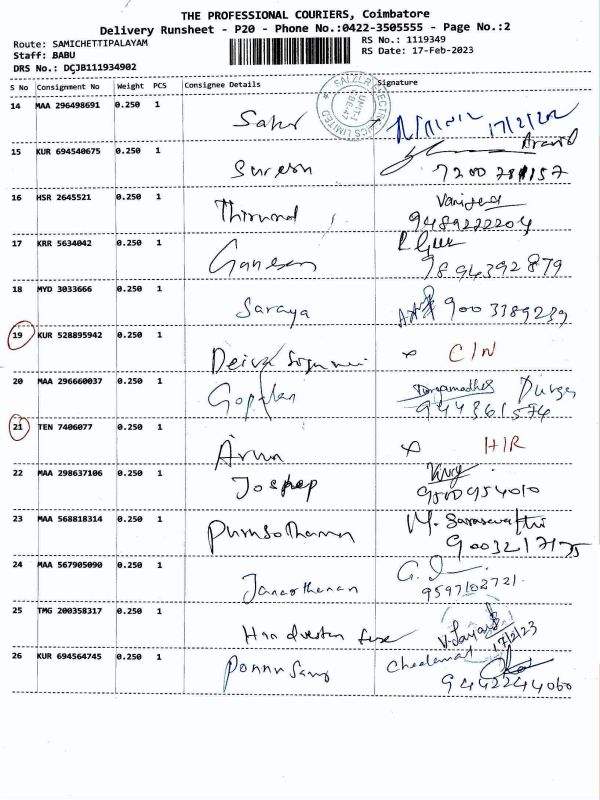 THE PROFESSIONAL COURIERS, Coimbatore
Delivery Runsheet - P20 - Phone No.:0422-3505555 - Page No.:2
Route: SAMICHETTIPALAYAM
RS No.: 1119349
Staff: BABU
RS Date: 17-Feb-2023
DRS No.: DCJB111934902
S No Consignment No Weight PCS Consignee Details Signature
14 MAA 296498691 0.250 1
17/2/202
15 KUR 694540675 0.250 1 Suresh Aravid
16 HSR 2645521 0.250 1
9489222204
17 KRR 5634042 0.250 1 Ganesan
9894392879
18 MYD 3033666 0.250 1 Saraya 9003389239
19 KUR 528895942 0.250 1 Deiva x C/N
20 MAA 296660037 0.250 1 Gopalan Durga
944361574
21 TEN 7406077 0.250 1 Arun x H/R
22 MAA 298637106 0.250 1 Joshep
9500954010
23 MAA 568818314 0.250 1 M. Saraswathi
24 MAA 567905090 0.250 1
9597102721
25 TMG 200358317 0.250 1
17/2/23
26 KUR 694564745 0.250 1 Ponnu Samy
9442244060